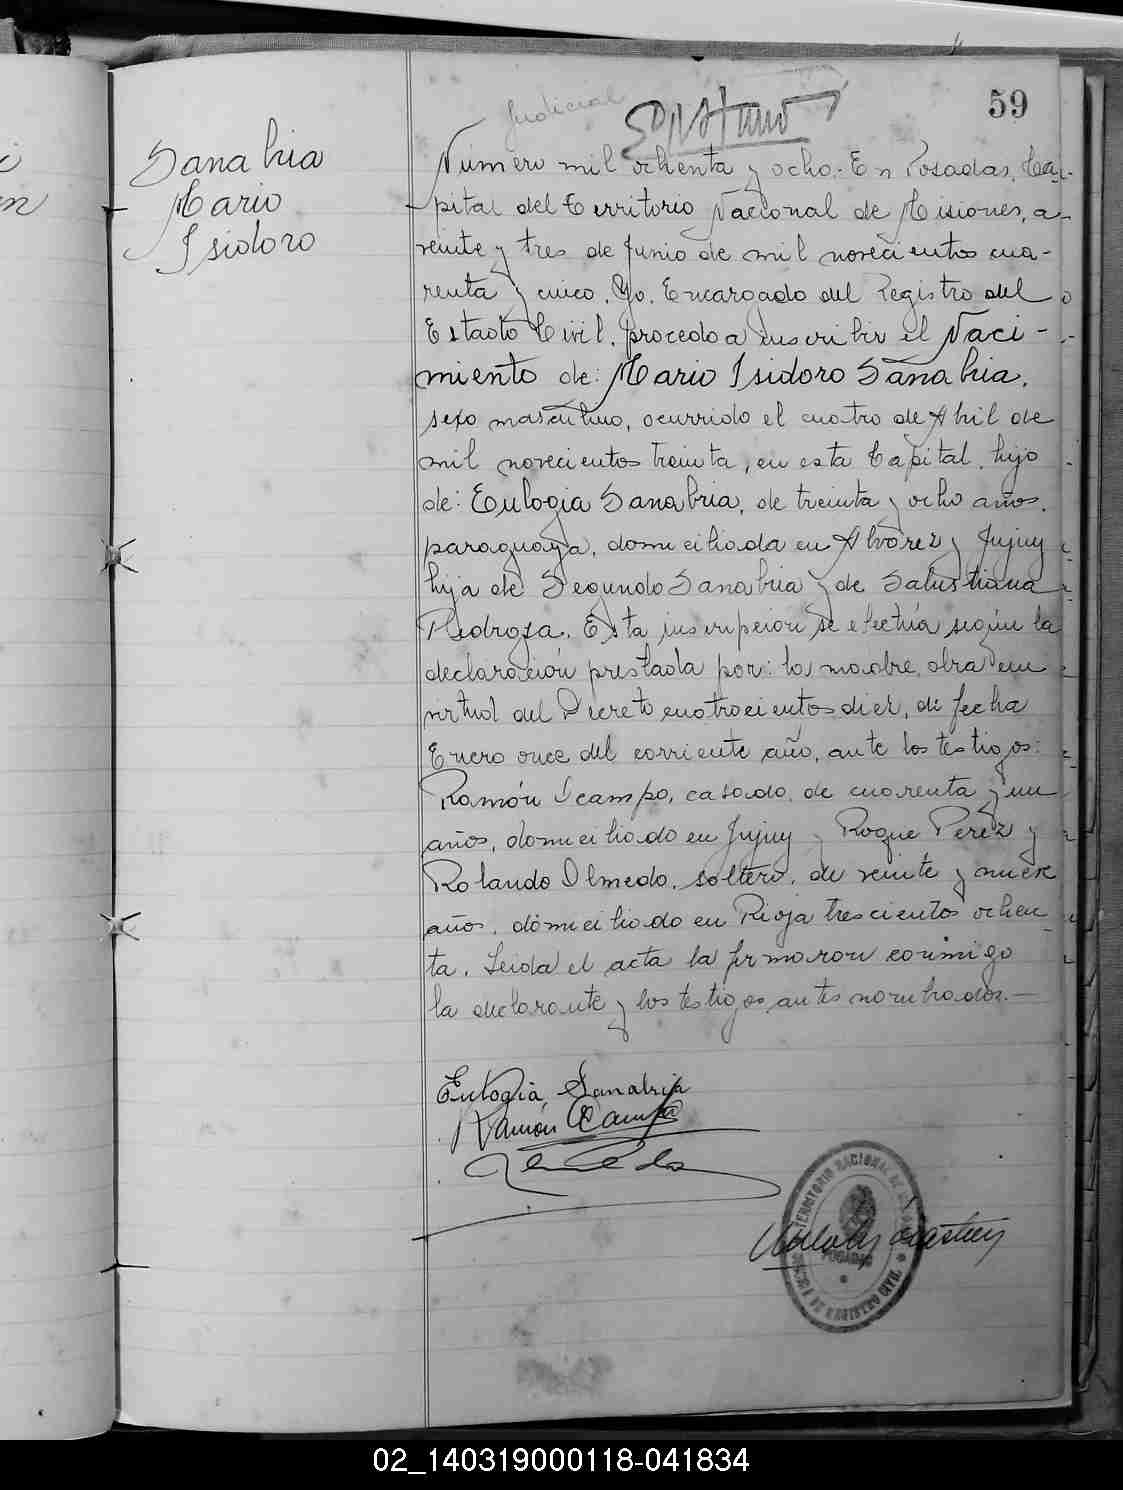 59
Judicial
Sanabria
Mario
Isidoro
Número mil ochenta y ocho.- En Posadas, Ca-
pital del Territorio Nacional de Misiones, a
veinte y tres de Junio de mil novecientos cua-
renta y cinco. Yo. Encargado del Registro del
Estado Civil, procedo a inscribir el Naci-
miento de: Mario Isidoro Sanabria,
sexo masculino, ocurrido el cuatro de Abril de
mil novecientos treinta, en esta Capital, hijo
de: Eulogia Sanabria, de treinta y ocho años,
paraguaya, domiciliada en Alvarez y Jujuy
hija de Segundo Sanabria y de Salustiana
Pedroza. Esta inscripcion se efectúa según la
declaración prestada por: la madre, obra en
virtud del Decreto cuatrocientos diez, de fecha
Enero once del corriente año, ante los testigos:
Ramón Ocampo, casado, de cuarenta y un
años, domiciliado en Jujuy y Roque Perez y
Rolando Olmedo, soltero, de veinte y nueve
años, domiciliado en Rioja trescientos ochen-
ta. Leida el acta la firmaron conmigo
la declarante y los testigos antes nombrados.—
Eulogia Sanabria
Ramón Ocampo
TERRITORIO NACIONAL DE MISIONES
POSADAS
REGISTRO CIVIL
02_140319000118-041834